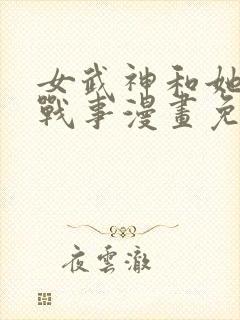 女武神和她
戰事漫畫免
夜雲澈